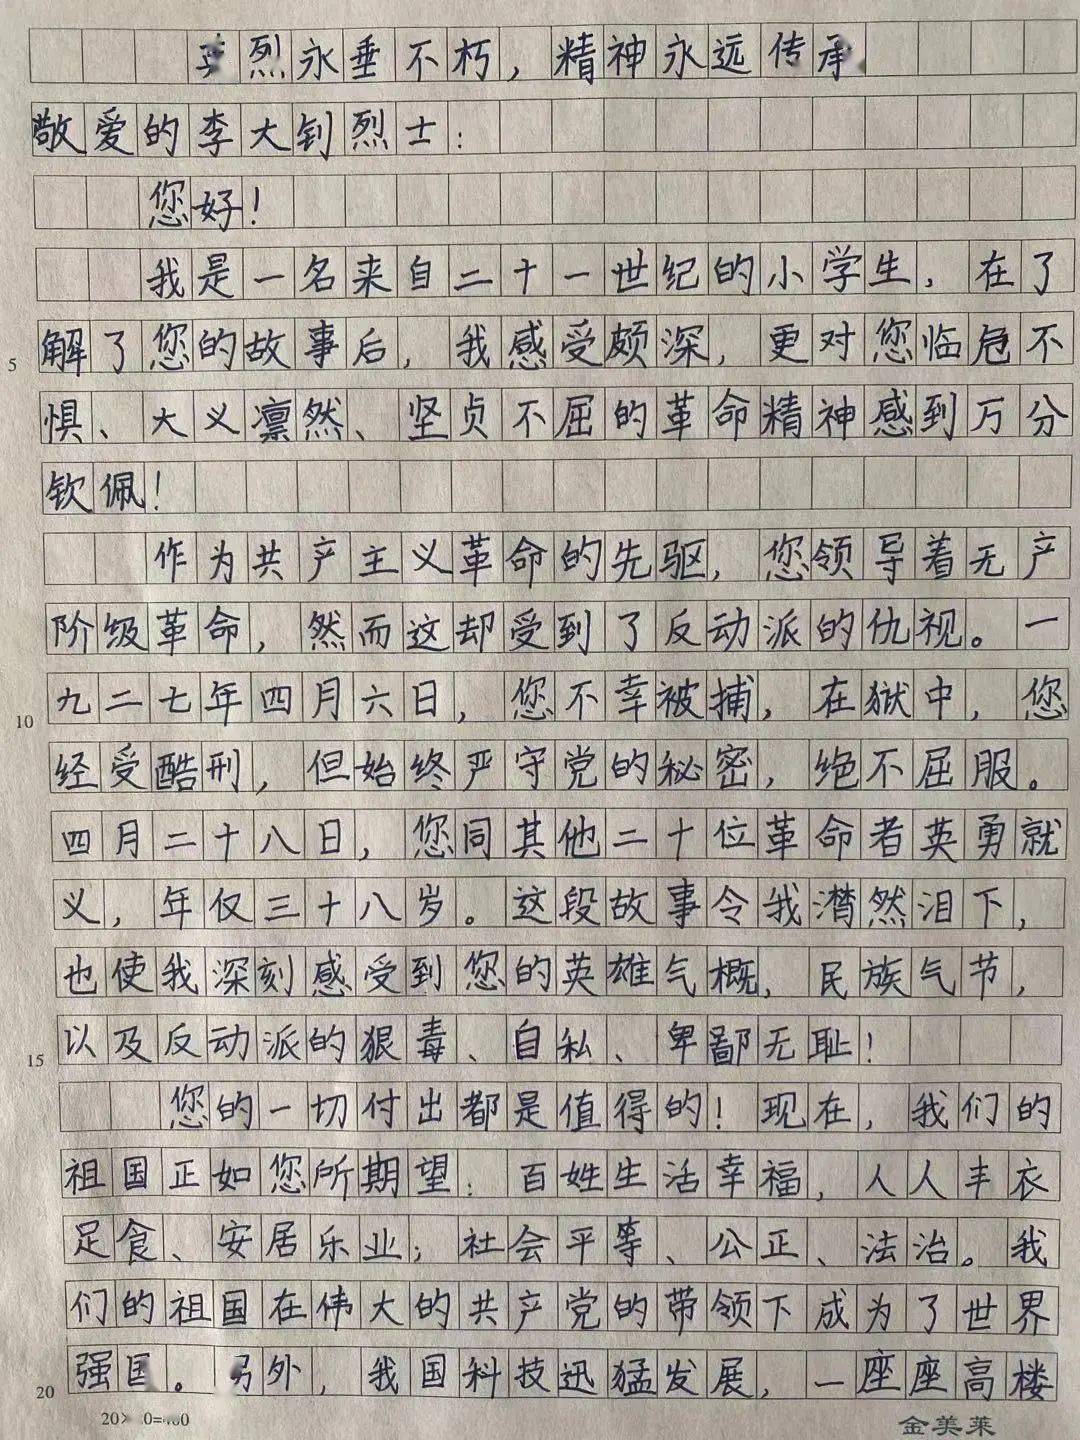 英烈永垂不朽，精神永远传承
敬爱的李大钊烈士：
您好！
我是一名来自二十一世纪的小学生，在了
5 解了您的故事后，我感受颇深，更对您临危不
惧、大义凛然、坚贞不屈的革命精神感到万分
钦佩！
作为共产主义革命的先驱，您领导着无产
阶级革命，然而这却受到了反动派的仇视。一
10 九二七年四月六日，您不幸被捕，在狱中，您
经受酷刑，但始终严守党的秘密，绝不屈服。
四月二十八日，您同其他二十位革命者英勇就
义，年仅三十八岁。这段故事令我潸然泪下，
也使我深刻感受到您的英雄气概，民族气节，
15 以及反动派的狠毒、自私、卑鄙无耻！
您的一切付出都是值得的！现在，我们的
祖国正如您所期望：百姓生活幸福，人人丰衣
足食、安居乐业；社会平等、公正、法治。我
们的祖国在伟大的共产党的带领下成为了世界
20 强国。另外，我国科技迅猛发展，一座座高楼
20×20=400 金美莱